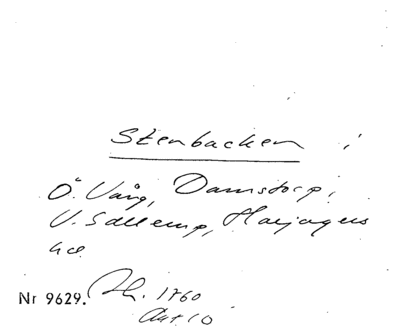 Stenbacken i
Ö. Vång, Damstorp,
V. Sallerup, Harjagers
hd.
Nr 9629. Ah. 1760
Akt 10